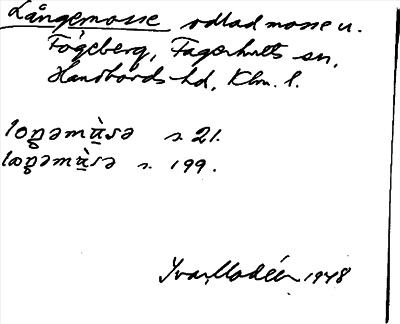 Långemosse odlad mosse u.
Fågeberg, Fagerhults sn,
Handbörds hd, Klm. l.
s. 21.
s. 199.
Ivar Modéer 1948